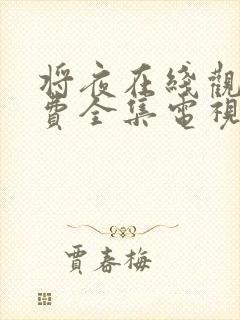 将夜在綫觀
費全集電視
賈春梅